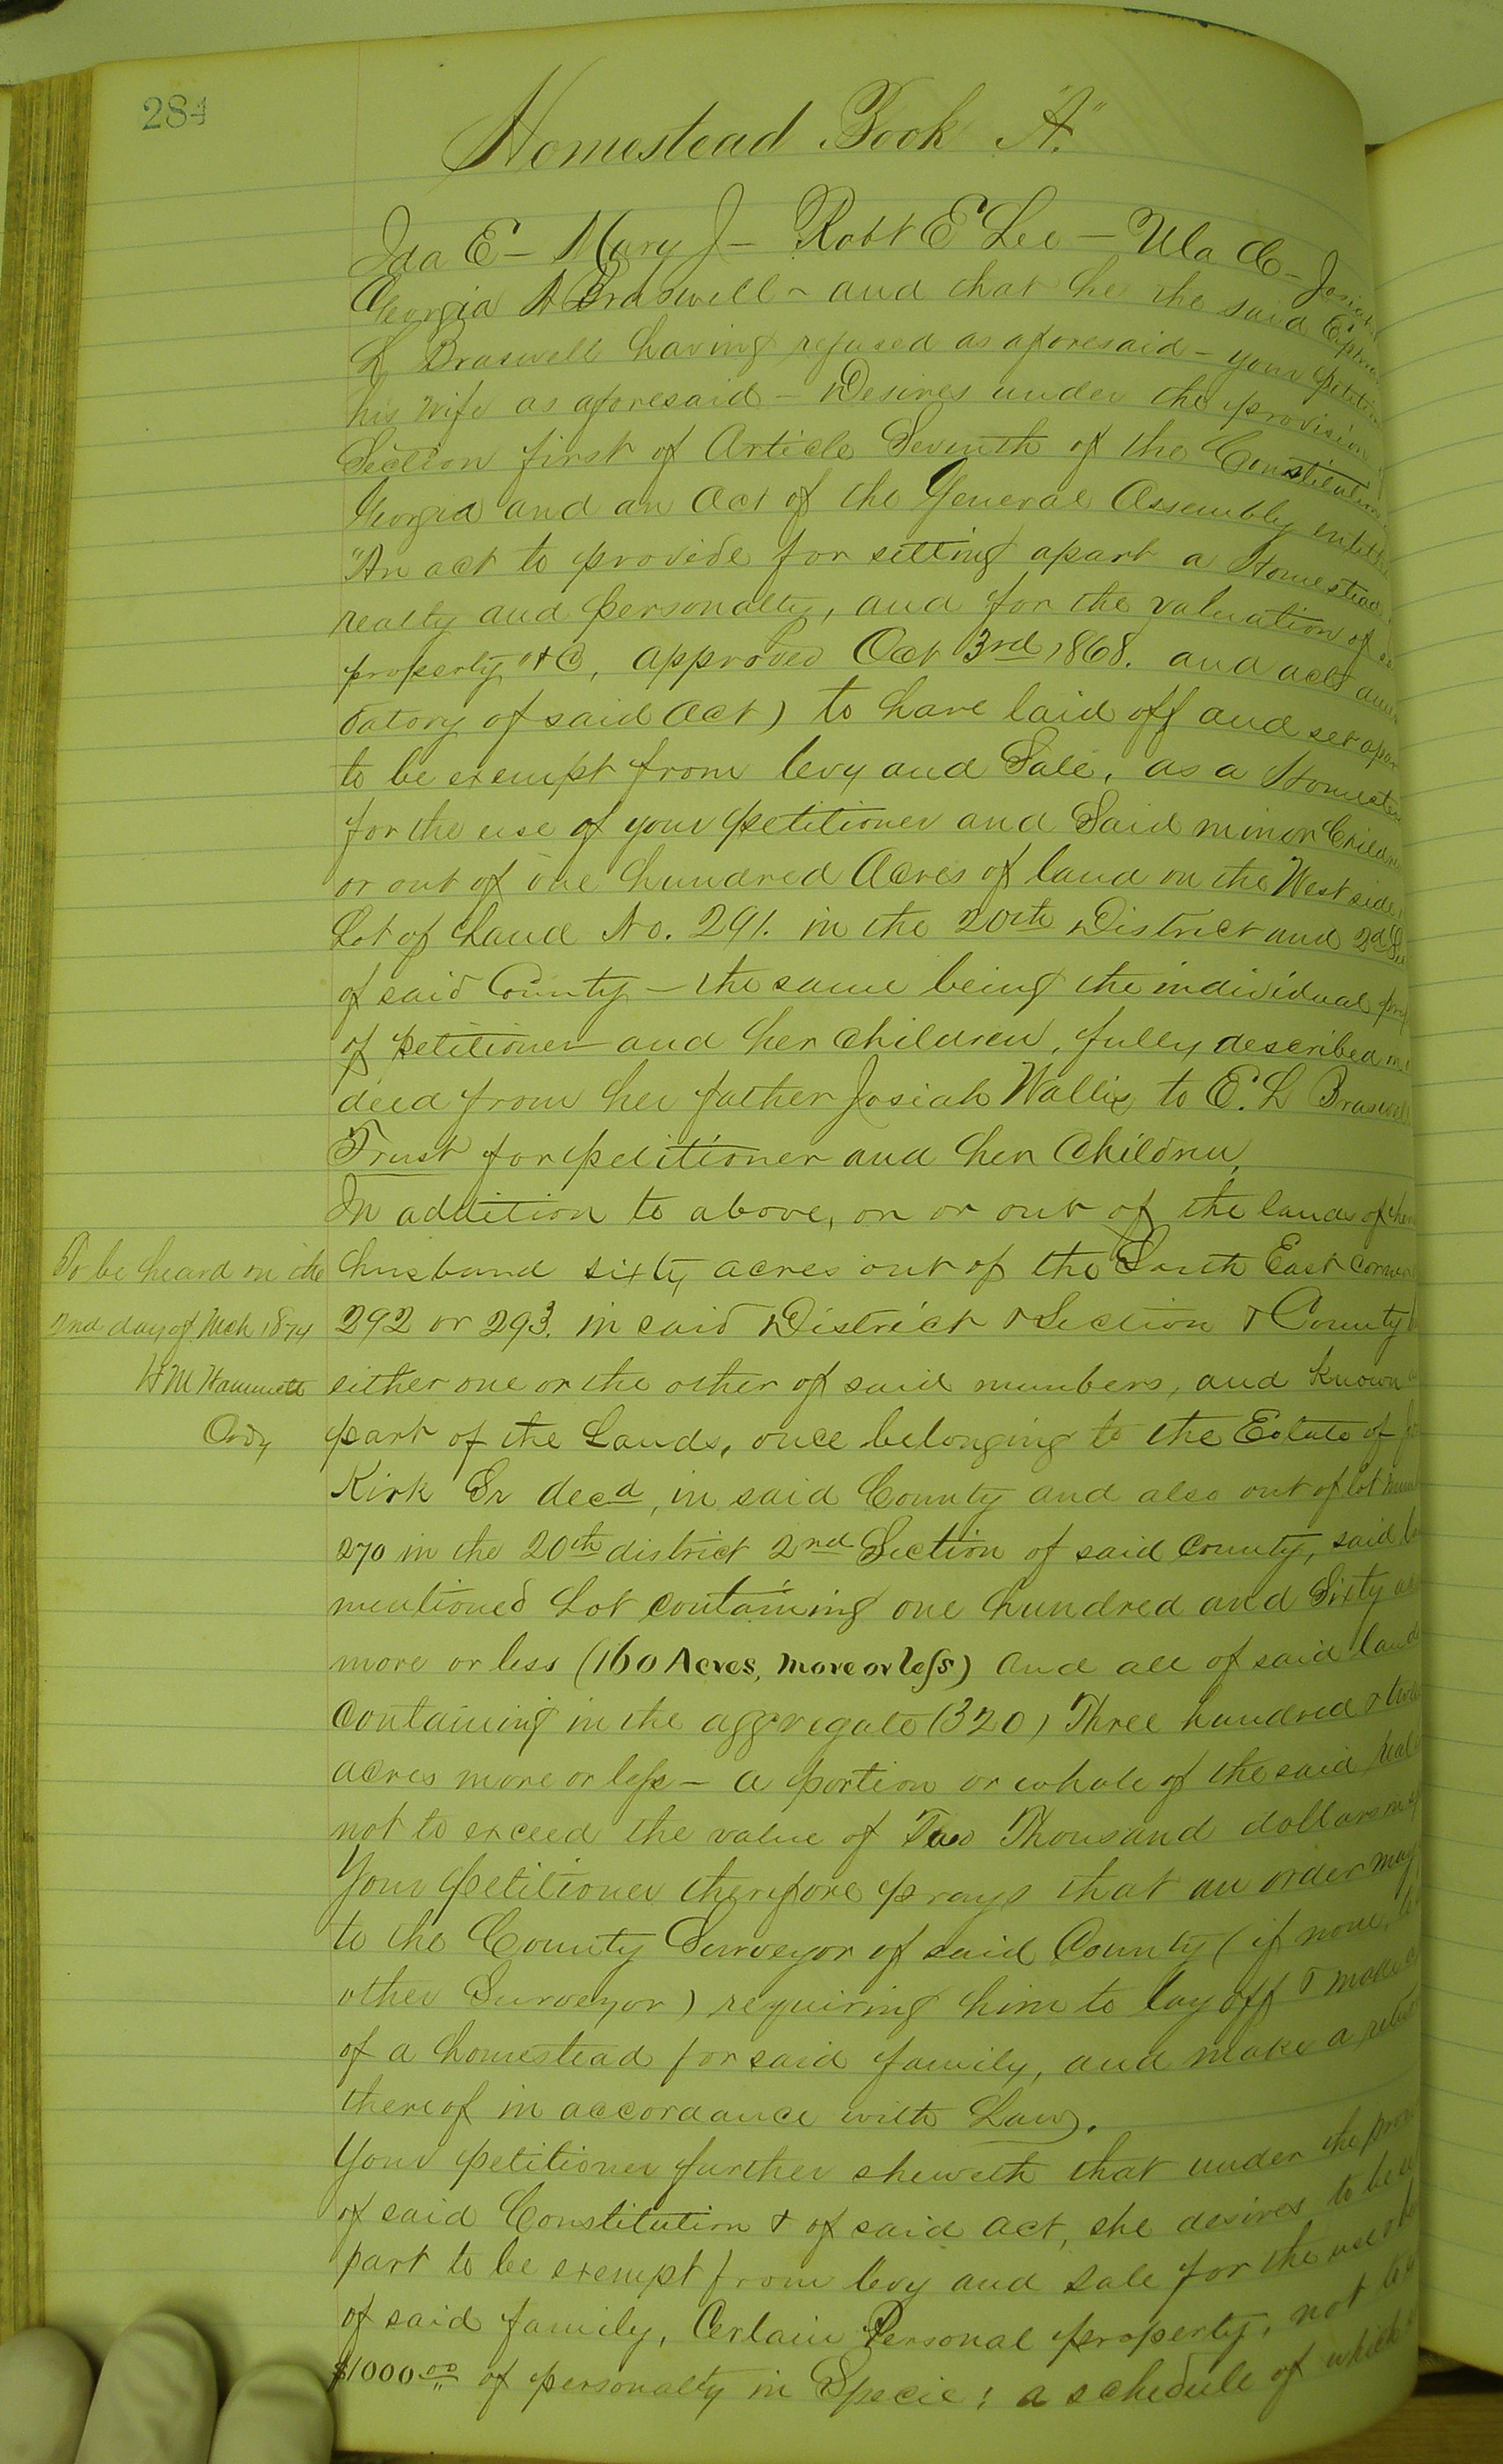 284
Homestead Book "A."
Ida E - Mary J - Robt E Lee - Ula C - Josiah
Georgia A Braswell - and that he the said Ephra
L Braswell having refused as aforesaid - your Petitio
his wife as aforesaid - Desires under the provision
Section first of Article Seventh of the Constitution
Georgia and an Act of the General Assembly entitl
"An act to provide for setting apart a Homestead
realty and personalty, and for the valuation of
property" &C, approved Oct 3rd 1868. and acts amen
datory of said Act) to have laid off and set apar
to be exempt from levy and Sale, as a Homeste
for the use of your petitioner and Said minor Childre
or out of one hundred Acres of land on the West side
Lot of Land No. 291. in the 20th District and 2d Se
of said County - the same being the individual prop
of petitioner and her children, fully described in
deed from her father Josiah Wallis to E. L Braswell
Trust for petitioner and her Children,
In addition to above, on or out of the lands of her
To be heard on the
2nd day of Mch 1874
H M Hammett
Ordy
husband sixty acres out of the South East corner
292 or 293. in said District & Section & County
either one or the other of said numbers, and known
part of the Lands, once belonging to the Estate of
Kirk Sr decd, in said County and also out of lot num
270 in the 20th district 2nd Section of said County, said
mentioned Lot containing one hundred and Sixty
more or less (160 Acres, more or less) and all of said land
Containing in the aggregate (320) Three hundred & twe
acres more or less - a portion or whole of the said Real
not to exceed the value of Two Thousand dollars in
Your petitioner therefore prays that an order may
to the County Surveyor of said County (if none,
other Surveyor) requiring him to lay off & make
of a homestead for said family, and make a retu
thereof in accordance with Law.
Your petitioner further sheweth that under the prov
of said Constitution & of said act, she desires to be
part to be exempt from levy and sale for the use
of said family, Certain Personal property, not
$1000.00 of personalty in Specie; a schedule of which